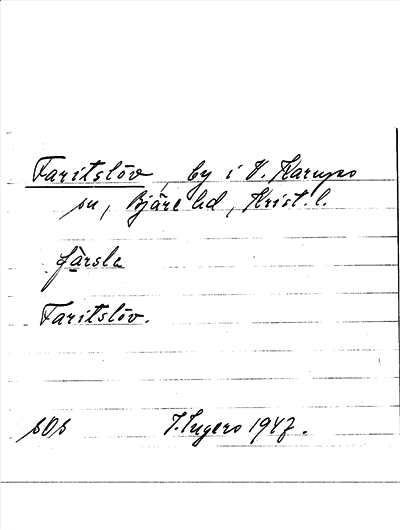 Faritslöv, by i V. Karups
sn, Bjäre hd, Krist. l.
fàrsle
Faritslöv.
SOS J. Ingers 1947.